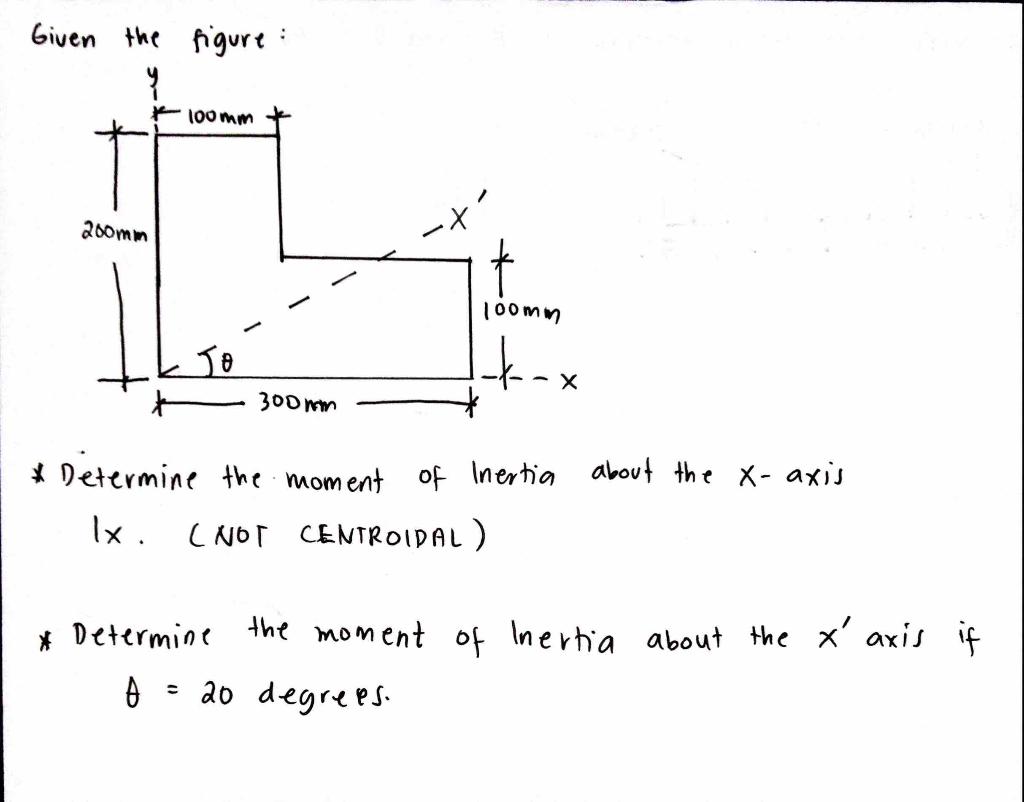 Given the figure :
y
100mm
x'
200mm
100mm
θ
x
300mm
* Determine the moment of Inertia about the x-axis
Ix. (NOT CENTROIDAL)
* Determine the moment of Inertia about the x' axis if
θ = 20 degrees.